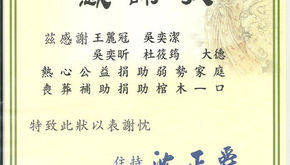 感謝狀
茲感謝王麗冠 吳奕潔
吳奕昕 杜筱筠 大德
熱心公益捐助弱勢家庭
喪葬補助捐助棺木一口
特致此狀以表謝忱
住持